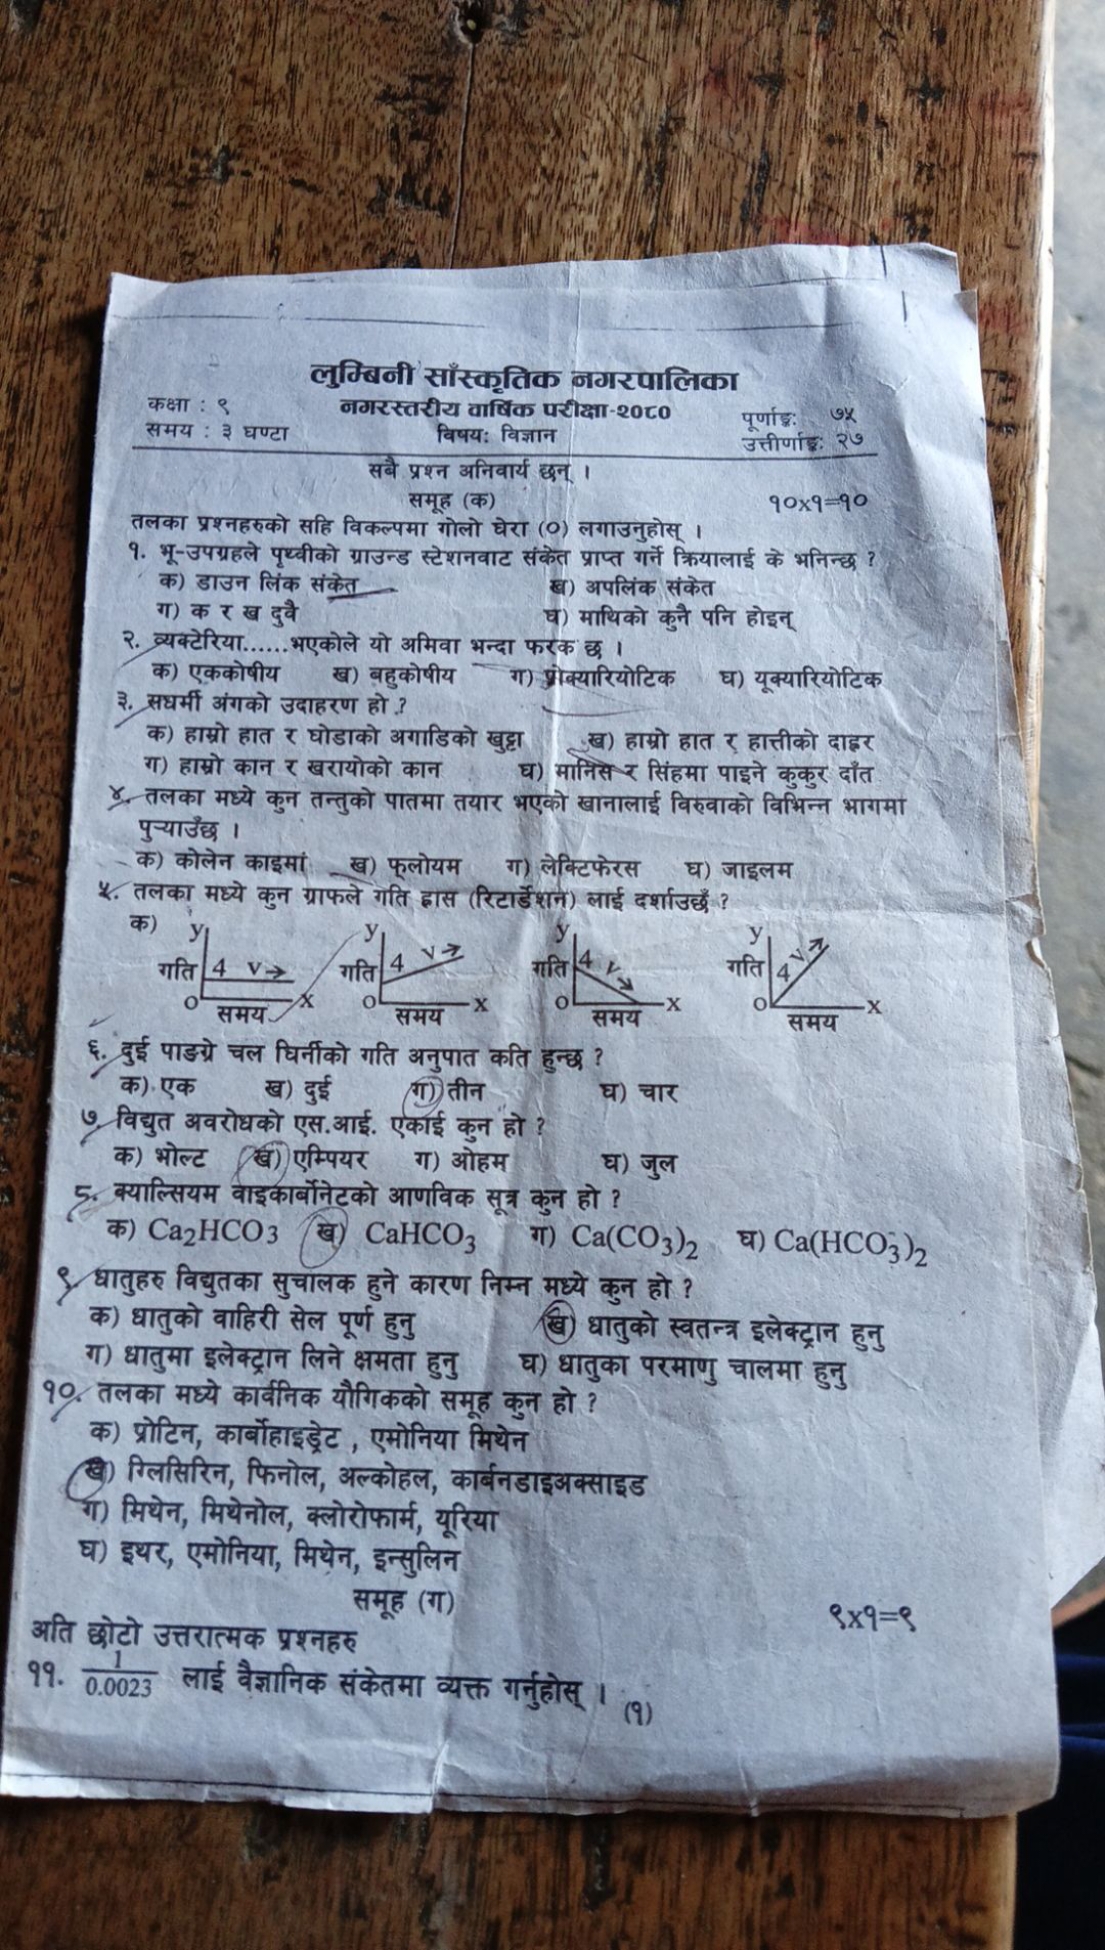 लुम्बिनी साँस्कृतिक नगरपालिका
कक्षा : ९ नगरस्तरीय वार्षिक परीक्षा-२०८० पूर्णाङ्क: ७५
समय : ३ घण्टा विषय: विज्ञान उत्तीर्णाङ्क: २७
सबै प्रश्न अनिवार्य छन् ।
समूह (क) १०x१=१०
तलका प्रश्नहरुको सहि विकल्पमा गोलो घेरा (०) लगाउनुहोस् ।
१. भू-उपग्रहले पृथ्वीको ग्राउन्ड स्टेशनवाट संकेत प्राप्त गर्ने क्रियालाई के भनिन्छ ?
क) डाउन लिंक संकेत ख) अपलिंक संकेत
ग) क र ख दुवै घ) माथिको कुनै पनि होइन्
२. व्यक्टेरिया......भएकोले यो अमिवा भन्दा फरक छ ।
क) एककोषीय ख) बहुकोषीय ग) प्रोक्यारियोटिक घ) यूक्यारियोटिक
३. सधर्मी अंगको उदाहरण हो ?
क) हाम्रो हात र घोडाको अगाडिको खुट्टा ख) हाम्रो हात र हात्तीको दाह्रर
ग) हाम्रो कान र खरायोको कान घ) मानिस र सिंहमा पाइने कुकुर दाँत
४. तलका मध्ये कुन तन्तुको पातमा तयार भएको खानालाई विरुवाको विभिन्न भागमा
पुऱ्याउँछ ।
क) कोलेन काइमां ख) फ्लोयम ग) लेक्टिफेरस घ) जाइलम
५. तलका मध्ये कुन ग्राफले गति ह्रास (रिटार्डेशन) लाई दर्शाउछँ ?
क) y y y y
गति 4 v गति 4 v गति 4 v गति 4 v
o समय x o समय x o समय x o समय x
६. दुई पाङग्रे चल घिर्नीको गति अनुपात कति हुन्छ ?
क) एक ख) दुई ग) तीन घ) चार
७. विद्युत अवरोधको एस.आई. एकाई कुन हो ?
क) भोल्ट ख) एम्पियर ग) ओहम घ) जुल
८. क्याल्सियम वाइकार्बोनेटको आणविक सूत्र कुन हो ?
क) Ca₂HCO3 ख) CaHCO₃ ग) Ca(CO₃)₂ घ) Ca(HCO₃)₂
९. धातुहरु विद्युतका सुचालक हुने कारण निम्न मध्ये कुन हो ?
क) धातुको वाहिरी सेल पूर्ण हुनु ख) धातुको स्वतन्त्र इलेक्ट्रान हुनु
ग) धातुमा इलेक्ट्रान लिने क्षमता हुनु घ) धातुका परमाणु चालमा हुनु
१०. तलका मध्ये कार्वनिक यौगिकको समूह कुन हो ?
क) प्रोटिन, कार्बोहाइड्रेट , एमोनिया मिथेन
ख) ग्लिसिरिन, फिनोल, अल्कोहल, कार्बनडाइअक्साइड
ग) मिथेन, मिथेनोल, क्लोरोफार्म, यूरिया
घ) इथर, एमोनिया, मिथेन, इन्सुलिन
समूह (ग)
अति छोटो उत्तरात्मक प्रश्नहरु ९x१=९
११. 1/0.0023 लाई वैज्ञानिक संकेतमा व्यक्त गर्नुहोस् ।
(१)